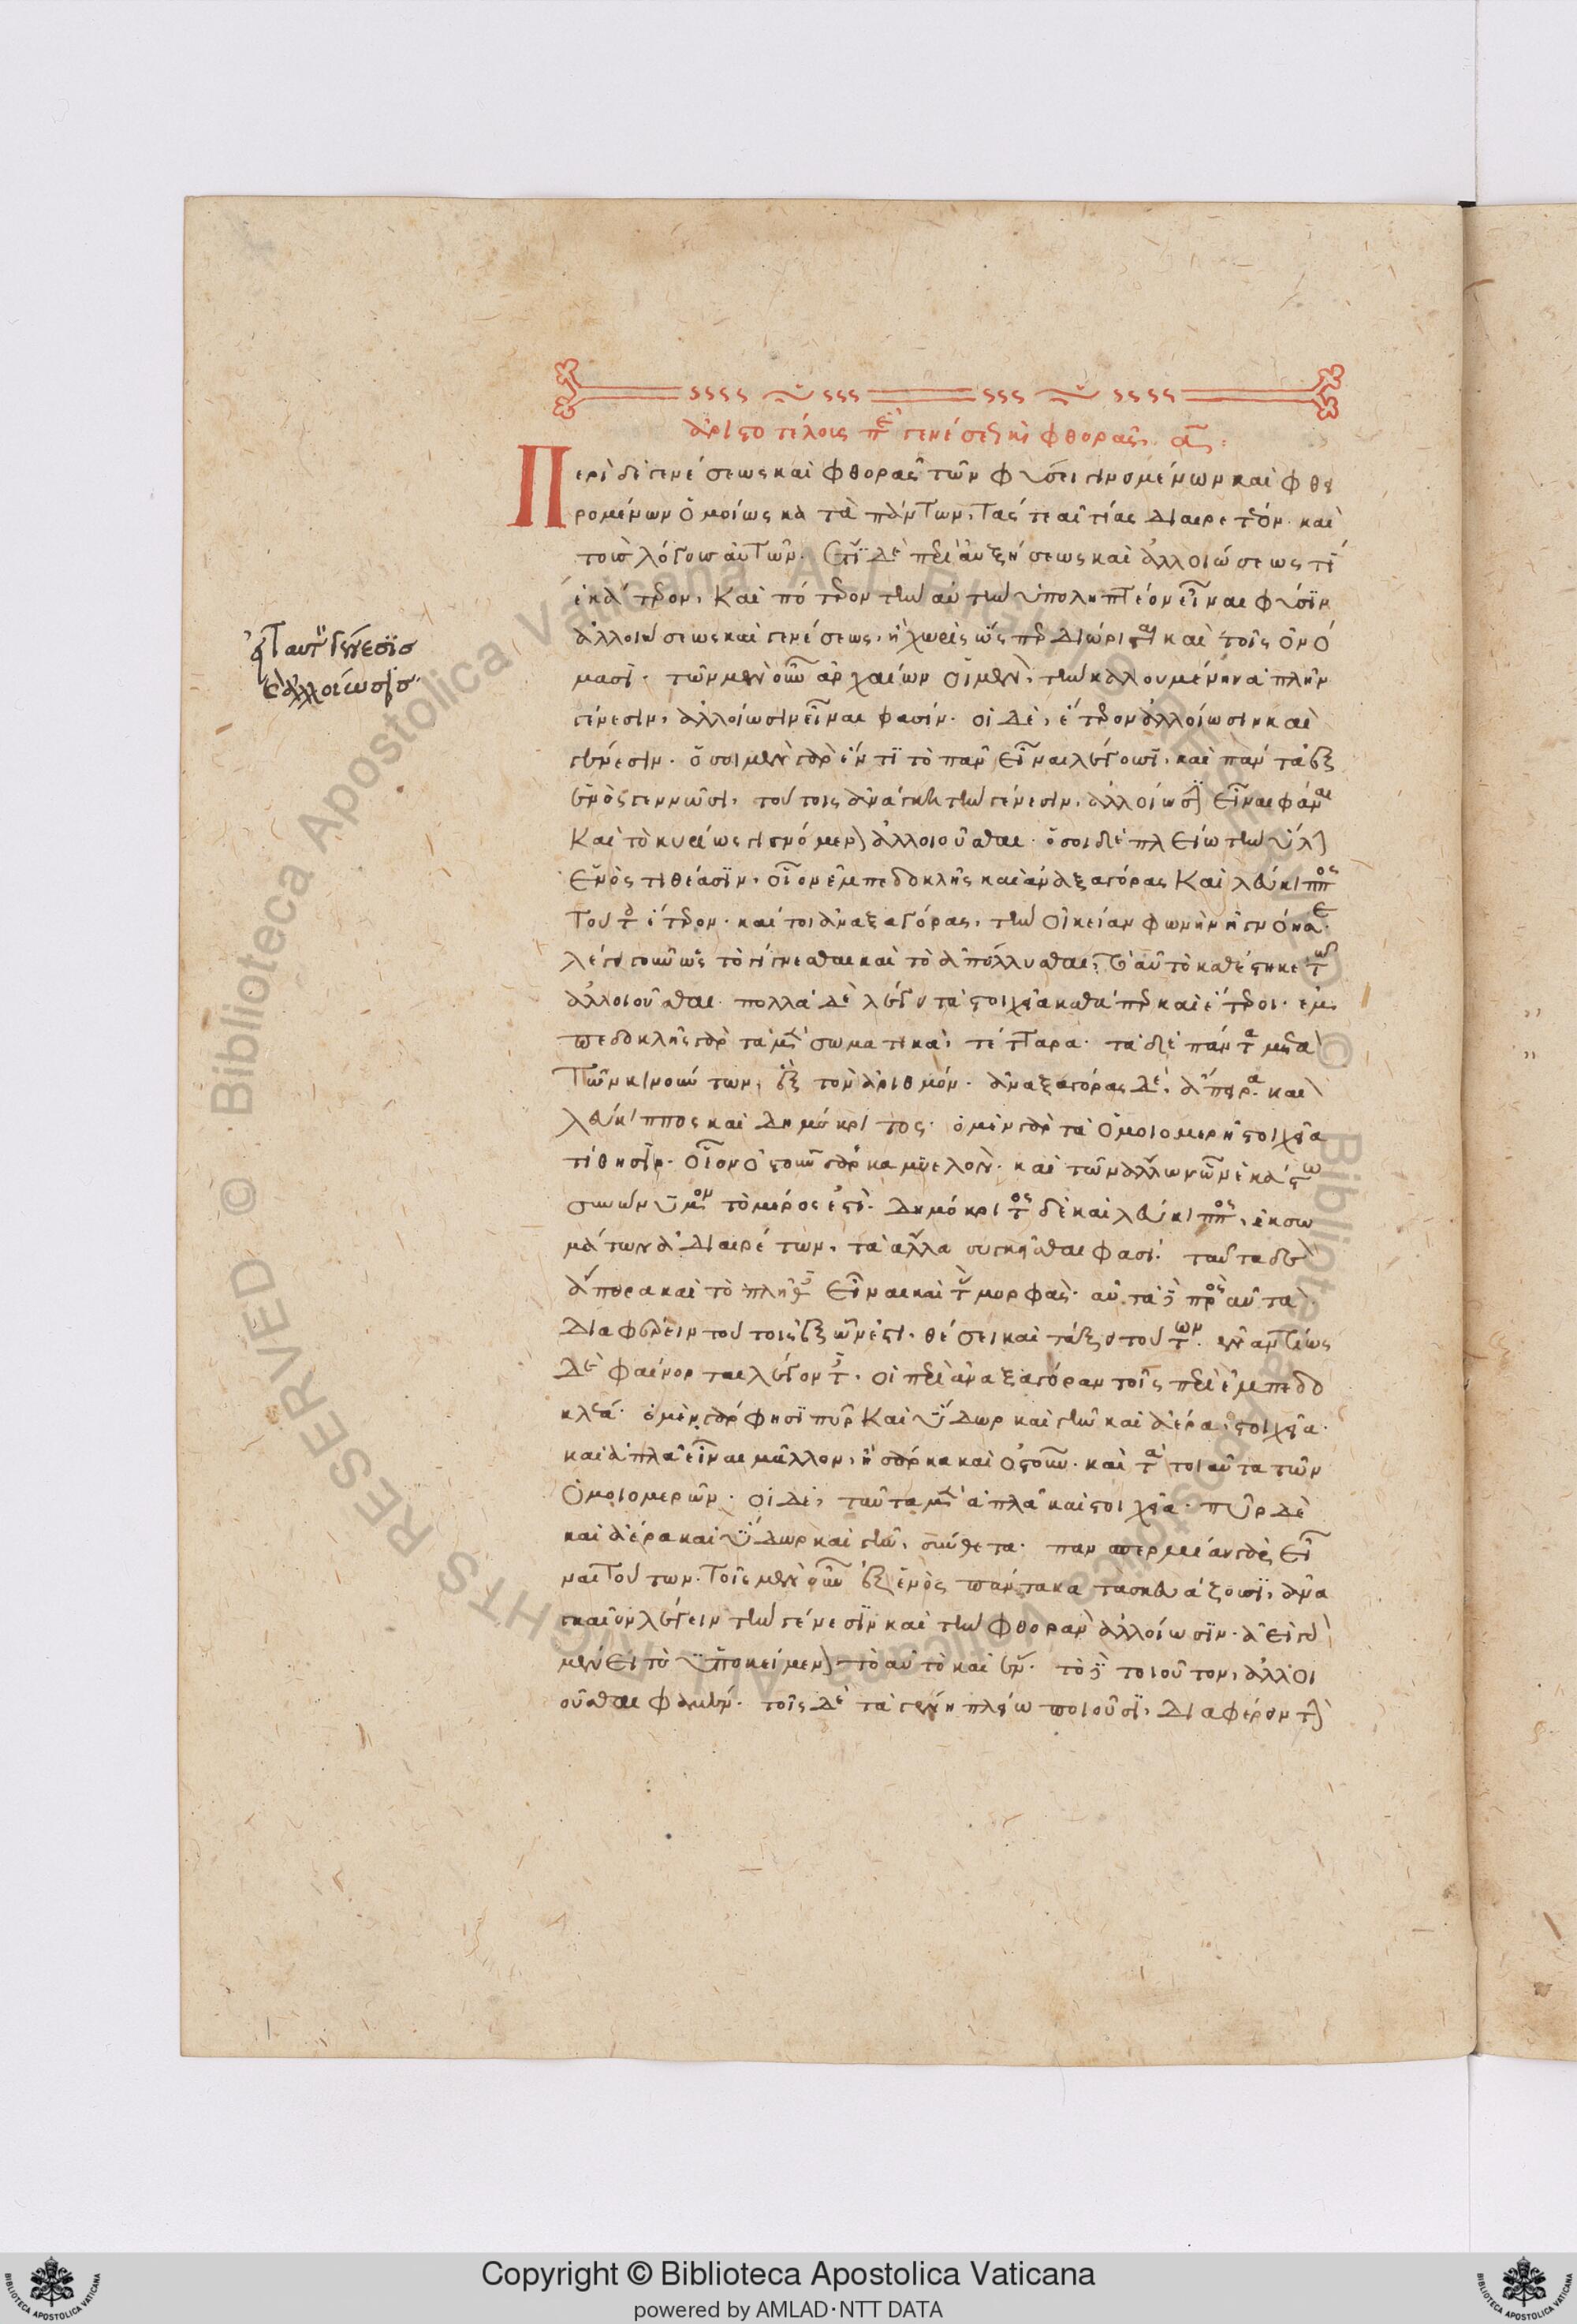 ἀριστοτέλους περὶ γενέσεως καὶ φθορᾶς. α:
Περὶ δὲ γενέσεως καὶ φθορᾶς τῶν φύσει γινομένων καὶ φθει
ρομένων ὁμοίως κατὰ πάντων, τάς τε αἰτίας διαιρετέον. καὶ
τοὺς λόγους αὐτῶν. ἔτι δὲ περὶ αὐξήσεως καὶ ἀλλοιώσεως τί
ἑκάτερον, καὶ πότερον τὴν αὐτὴν ὑποληπτέον εἶναι φύσιν
ἀλλοιώσεως καὶ γενέσεως, ἢ χωρὶς ὥσπερ διώρισται καὶ τοῖς ὀνό
μασι. τῶν μὲν οὖν ἀρχαίων οἱ μὲν, τὴν καλουμένην ἁπλῆν
γένεσιν, ἀλλοίωσιν εἶναι φασίν. οἱ δὲ, ἕτερον ἀλλοίωσιν καὶ
γένεσιν. ὅσοι μὲν γὰρ ἕν τι τὸ πᾶν εἶναι λέγουσι, καὶ πάντα ἐξ
ἑνὸς γεννῶσι, τούτοις ἀνάγκη τὴν γένεσιν, ἀλλοίωσιν εἶναι φάναι
καὶ τὸ κυρίως γινόμενον ἀλλοιοῦσθαι. ὅσοι δὲ πλείω τὴν ὕλην
ἑνὸς τιθέασιν, οἷον ἐμπεδοκλῆς καὶ ἀναξαγόρας καὶ λεύκιππος
τούτοις ἕτερον. καίτοι ἀναξαγόρας, τὴν οἰκείαν φωνὴν ἠγνόησε.
λέγει γοῦν ὡς τὸ γίγνεσθαι καὶ τὸ ἀπόλλυσθαι, ταὐτὸ καθέστηκε τῷ
ἀλλοιοῦσθαι. πολλὰ δὲ λέγει τὰ στοιχεῖα καθάπερ καὶ ἕτεροι. ἐμ
πεδοκλῆς γὰρ τὰ μὲν σωματικὰ, τέτταρα. τὰ δὲ πάντα μετὰ
τῶν κινούντων, ἓξ τὸν ἀριθμόν. ἀναξαγόρας δὲ, ἄπειρα. καὶ
λεύκιππος καὶ δημόκριτος. ὁ μὲν γὰρ τὰ ὁμοιομερῆ στοιχεῖα
τίθησιν. οἷον ὀστοῦν σάρκα μυελὸν. καὶ τῶν ἄλλων ὧν ἑκάστω
συνώνυμον τὸ μέρος ἐστὶ. δημόκριτος δὲ καὶ λεύκιππος, ἐκ σω
μάτων ἀδιαιρέτων, τἆλλα συγκεῖσθαι φασί. ταῦτα δὲ
ἄπειρα καὶ τὸ πλῆθος εἶναι καὶ τὰς μορφὰς. αὐτὰ δὲ πρὸς αὐτὰ
διαφέρειν τούτοις ἐξ ὧν ἐστι. θέσει καὶ τάξει τούτων. ἐναντίως
δὲ φαίνονται λέγοντες. οἱ περὶ ἀναξαγόραν τοῖς περὶ ἐμπεδο
κλέα. ὁ μὲν γάρ φησι πῦρ καὶ ὕδωρ καὶ γῆν καὶ ἀέρα, στοιχεῖα.
καὶ ἁπλᾶ εἶναι μᾶλλον, ἢ σάρκα καὶ ὀστοῦν. καὶ τὰ τοιαῦτα τῶν
ὁμοιομερῶν. οἱ δὲ, ταῦτα μὲν ἁπλᾶ καὶ στοιχεῖα. πῦρ δὲ
καὶ ἀέρα καὶ ὕδωρ καὶ γῆν, σύνθετα. πανσπερμίαν γὰρ εἶ
ναι τούτων. τοῖς μὲν οὖν ἐξ ἑνὸς πάντα κατασκευάζουσι, ἀνα
γκαῖον λέγειν τὴν γένεσιν καὶ τὴν φθορὰν ἀλλοίωσιν. ἀεὶ γὰρ
μένει τὸ ὑποκείμενον τὸ αὐτὸ καὶ ἕν. τὸ δὲ τοιοῦτον, ἀλλοι
οῦσθαι φαμέν. τοῖς δὲ τὰ γένη πλείω ποιοῦσι, διαφέρειν τὴν
εἰ ταυτὸν γένεσις
καὶ ἀλλοίωσις
© Biblioteca Apostolica Vaticana ALL RIGHTS RESERVED
Copyright © Biblioteca Apostolica Vaticana
powered by AMLAD·NTT DATA